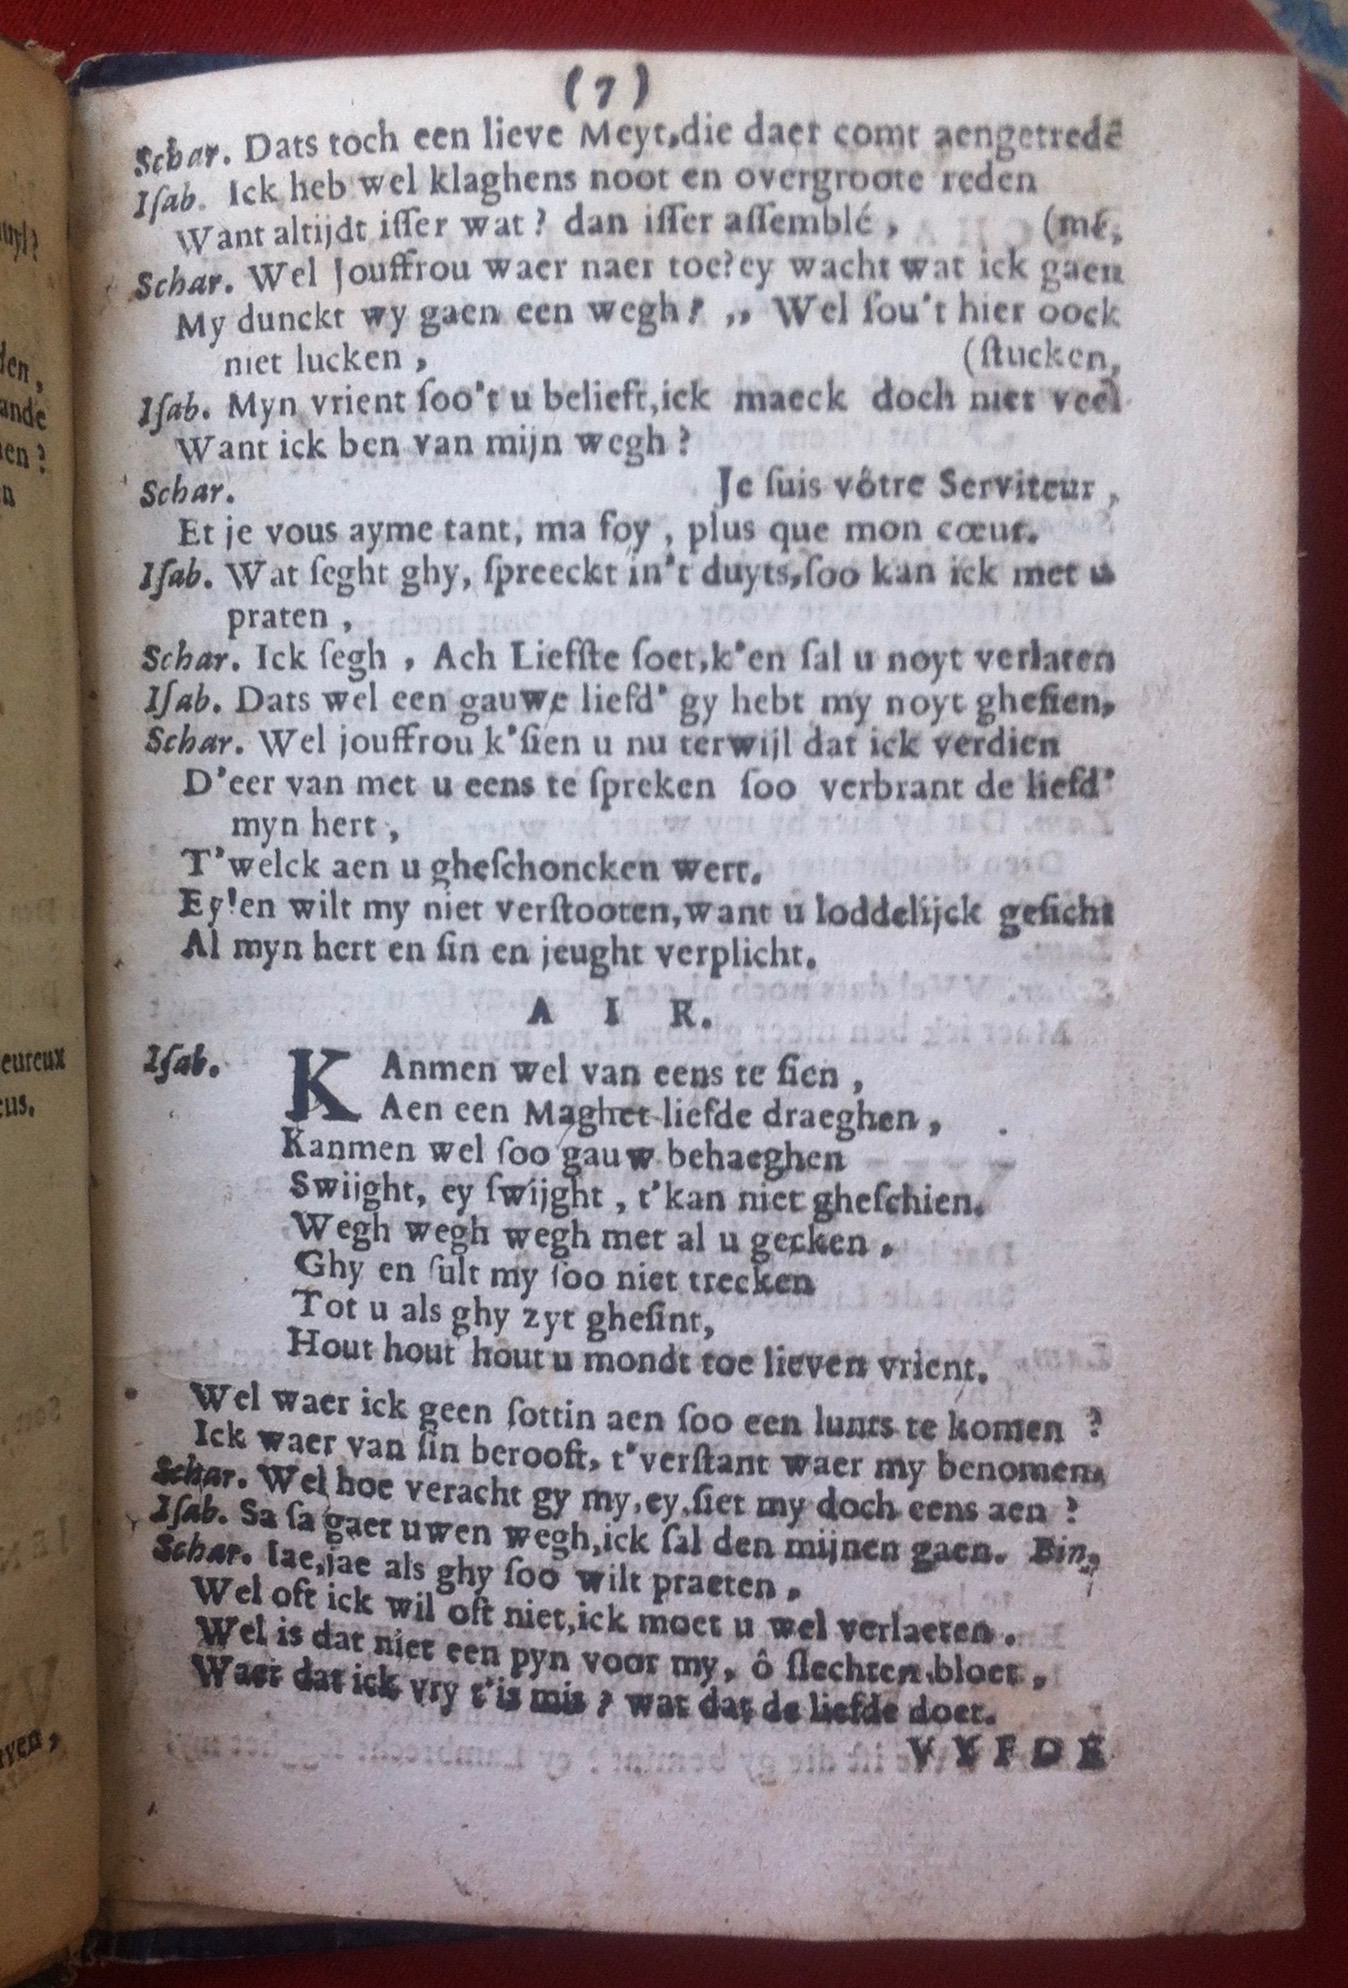 (7)
Schar. Dats toch een lieve Meyt,die daer comt aengetredē
Iſab. Ick heb wel klaghens noot en overgroote reden
Want altijdt iſſer wat? dan iſſer aſſemblé, (mé,
Schar. Wel Jouffrou waer naer toe?ey wacht wat ick gaen
My dunckt wy gaen een wegh? ,, Wel ſou't hier oock
niet lucken, (ſtucken,
Iſab. Myn vrient ſoo't u belieft,ick maeck doch niet veel
Want ick ben van mijn wegh?
Schar. Je ſuis vôtre Serviteur,
Et je vous ayme tant, ma foy, plus que mon cœur.
Iſab. Wat ſeght ghy, ſpreeckt in't duyts,ſoo kan ick met u
praten,
Schar. Ick ſegh, Ach Liefſte ſoet,k'en ſal u noyt verlaten
Iſab. Dats wel een gauwe liefd' gy hebt my noyt gheſien,
Schar. Wel jouffrou k'ſien u nu terwijl dat ick verdien
D'eer van met u eens te ſpreken ſoo verbrant de liefd'
myn hert,
T'welck aen u gheſchoncken wert.
Ey!en wilt my niet verſtooten,want u loddelijck geſicht
Al myn hert en ſin en jeught verplicht.
A I R.
Iſab. KAnmen wel van eens te ſien,
Aen een Maghet liefde draeghen,
Kanmen wel ſoo gauw behaeghen
Swijght, ey ſwijght, t'kan niet gheſchien.
Wegh wegh wegh met al u gecken,
Ghy en ſult my ſoo niet trecken
Tot u als ghy zyt gheſint,
Hout hout hout u mondt toe lieven vrient.
Wel waer ick geen ſottin aen ſoo een lunts te komen?
Ick waer van ſin berooft, t'verſtant waer my benomen,
Schar. Wel hoe veracht gy my,ey,ſiet my doch eens aen?
Iſab. Sa ſa gaet uwen wegh,ick ſal den mijnen gaen. Bin,
Schar. Iae,jae als ghy ſoo wilt praeten,
Wel oft ick wil oft niet,ick moet u wel verlaeten.
Wel is dat niet een pyn voor my, ô ſlechten bloet,
Waer dat ick vry t'is mis? wat dat de liefde doet.
VYFDE